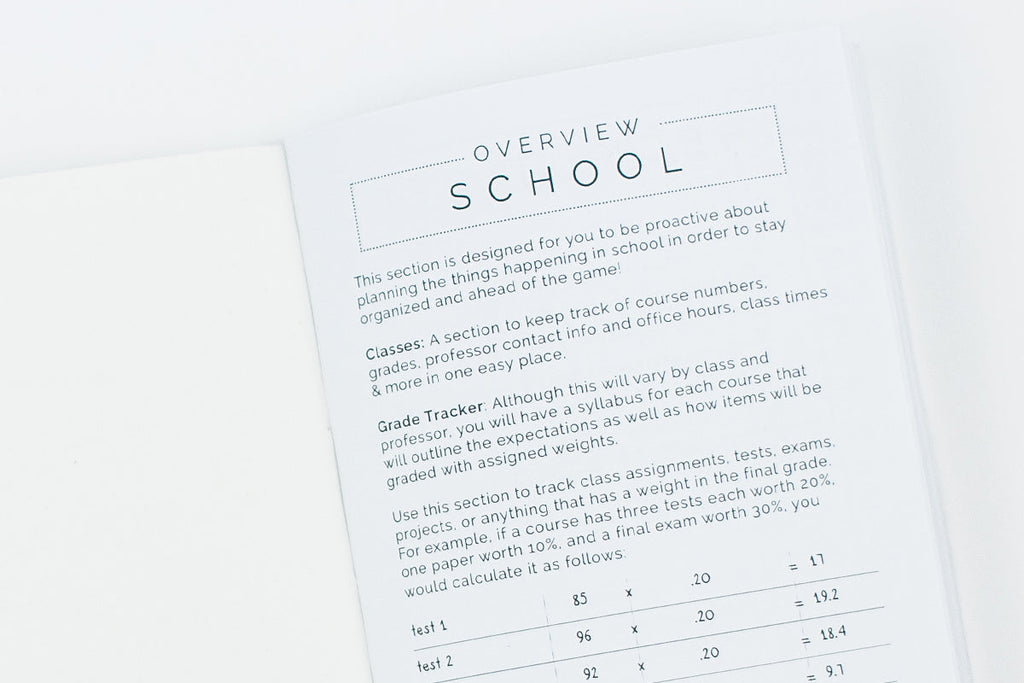 OVERVIEW
SCHOOL
This section is designed for you to be proactive about
planning the things happening in school in order to stay
organized and ahead of the game!
Classes: A section to keep track of course numbers,
grades, professor contact info and office hours, class times
& more in one easy place.
Grade Tracker: Although this will vary by class and
professor, you will have a syllabus for each course that
will outline the expectations as well as how items will be
graded with assigned weights.
Use this section to track class assignments, tests, exams,
projects, or anything that has a weight in the final grade.
For example, if a course has three tests each worth 20%,
one paper worth 10%, and a final exam worth 30%, you
would calculate it as follows:
test 1 85 x .20 = 17
test 2 96 x .20 = 19.2
92 x .20 = 18.4
= 9.7